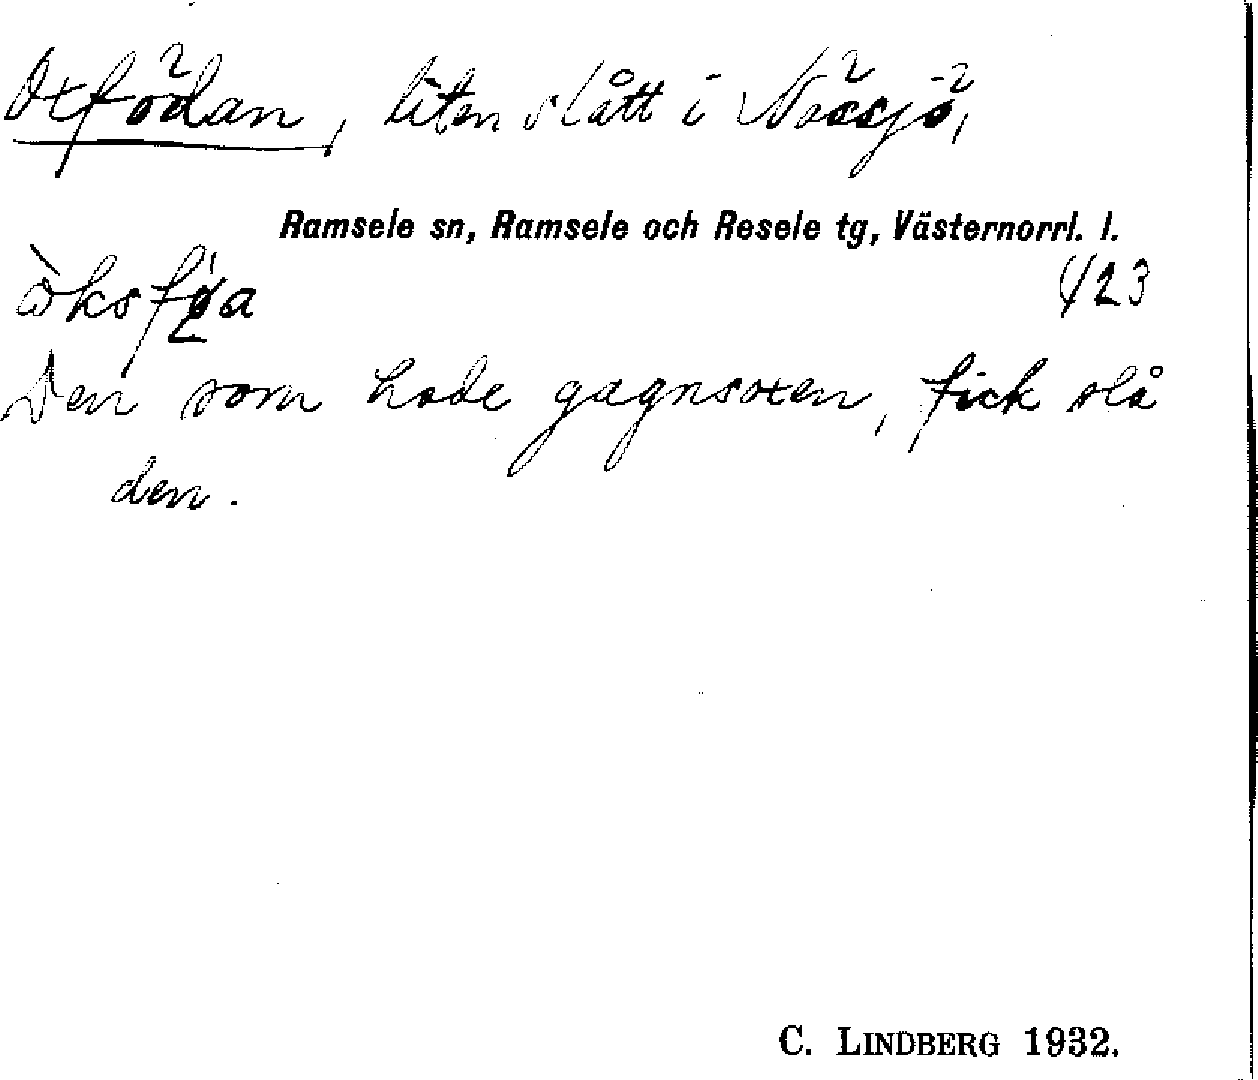 Oxfödan, liten slått i Nässjö,
Ramsele sn, Ramsele och Resele tg, Västernorrl. l.
423
Den som hade gagnsoxen, fick slå
den.
C. LINDBERG 1932.